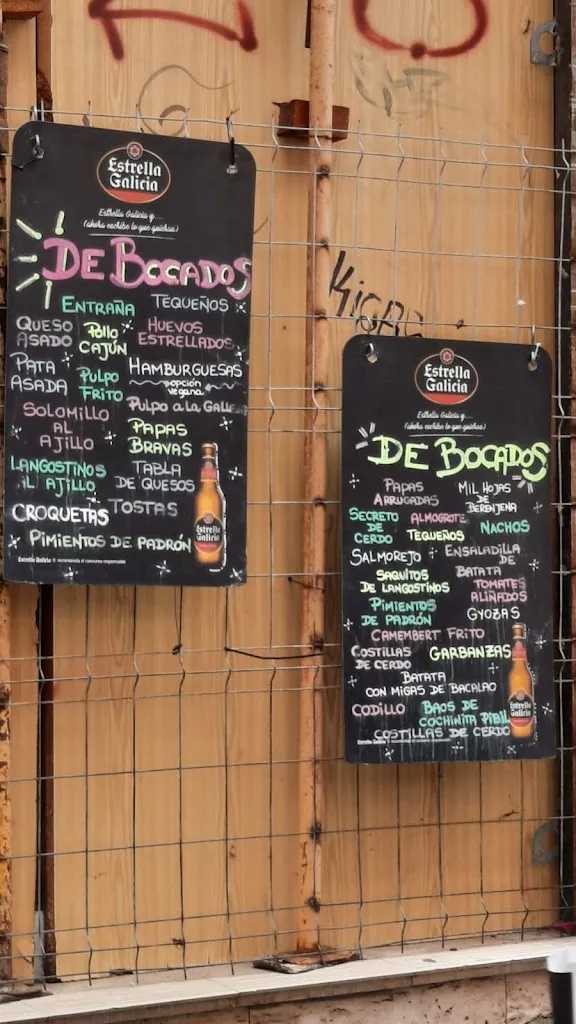 Estrella
Galicia
Estrella Galicia y...
(ahora escribe lo que quieras)
DE BOCADOS
ENTRAÑA TEQUEÑOS
QUESO ASADO
Pollo CAJÚN
HUEVOS ESTRELLADOS
PATA ASADA
PULPO FRITO
HAMBURGUESAS
opción vegana
SOLOMILLO AL AJILLO
PULPO a la
PAPAS BRAVAS
LANGOSTINOS AL AJILLO
TABLA DE QUESOS
CROQUETAS TOSTAS
PIMIENTOS DE PADRÓN
Estrella Galicia recomienda el consumo responsable
KIGAR
Estrella
Galicia
Estrella Galicia y...
(ahora escribe lo que quieras)
DE BOCADOS
PAPAS ARRUGADAS
MIL HOJAS DE BERENJENA
SECRETO DE CERDO
ALMOGROTE
NACHOS
TEQUEÑOS
SALMOREJO
ENSALADILLA DE BATATA
SAQUITOS DE LANGOSTINOS
TOMATES ALIÑADOS
PIMIENTOS DE PADRÓN
GYOZAS
CAMEMBERT FRITO
COSTILLAS DE CERDO
GARBANZAS
BATATA
CON MIGAS DE BACALAO
CODILLO
BAOS DE COCHINITA PIBIL
COSTILLAS DE CERDO